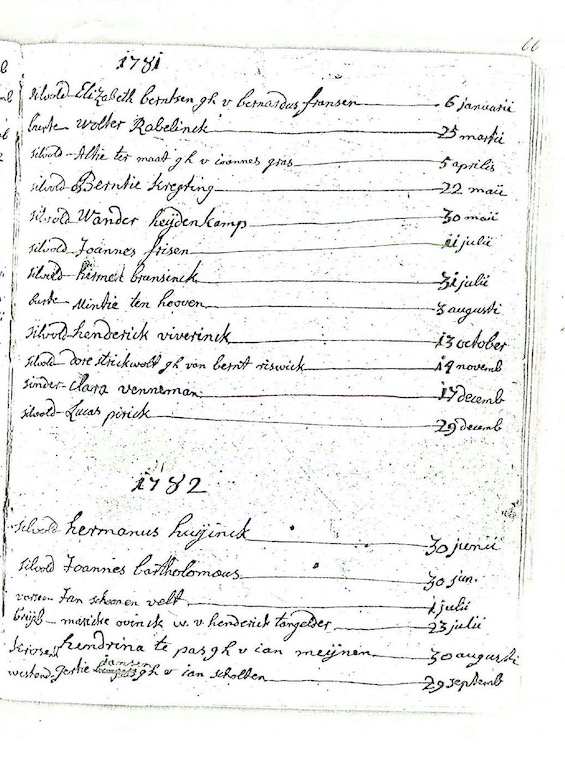 66
1781
silvold Elizabeth berntsen g h v bernardus fransen 6 januarii
burte wolter Rabelinck 25 martii
silvold Altie ter maat g h v ioannes gras 5 aprilis
silvold Berntie kregting 22 maii
silvold Wander heijdenkamp 30 maii
silvold Joannes frisen 11 julii
silvold hermen brunsinck 31 julii
burte Mintie ten hooven 3 augusti
silvold henderick viverinck 13 october
silvold dore strickwolt g h van bernt riswick 14 novemb
sinder clara venneman 17 decemb
silvold Lucas pirick 29 decemb
1782
silvold hermanus huijinck 30 junii
silvold Joannes bartholomous 30 jun.
Jan schoonen velt 1 julii
maricke ovinck w. v henderick tangelder 23 julii
hendrina te pas g h v ian meijnen 30 augusti
jansen
gertie g h v ian scholten 29 septemb